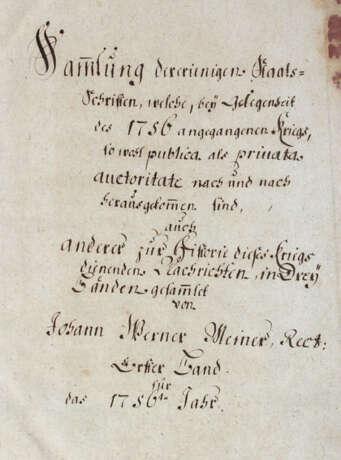 Sam̅lung dererienigen Staats=
Schriften, welche, bey Gelegenheit
des 1756 angegangenen Kriegs,
so wohl publica als privata
auctoritate nach und nach
herausgekom̅en sind,
auch
anderer zur Historie dieses Kriegs
dienenden Nachrichten, in Drey
Bänden gesam̅let
von
Johann Werner Meiner, Rect:
Erster Band.
für
das 1756te Jahr.